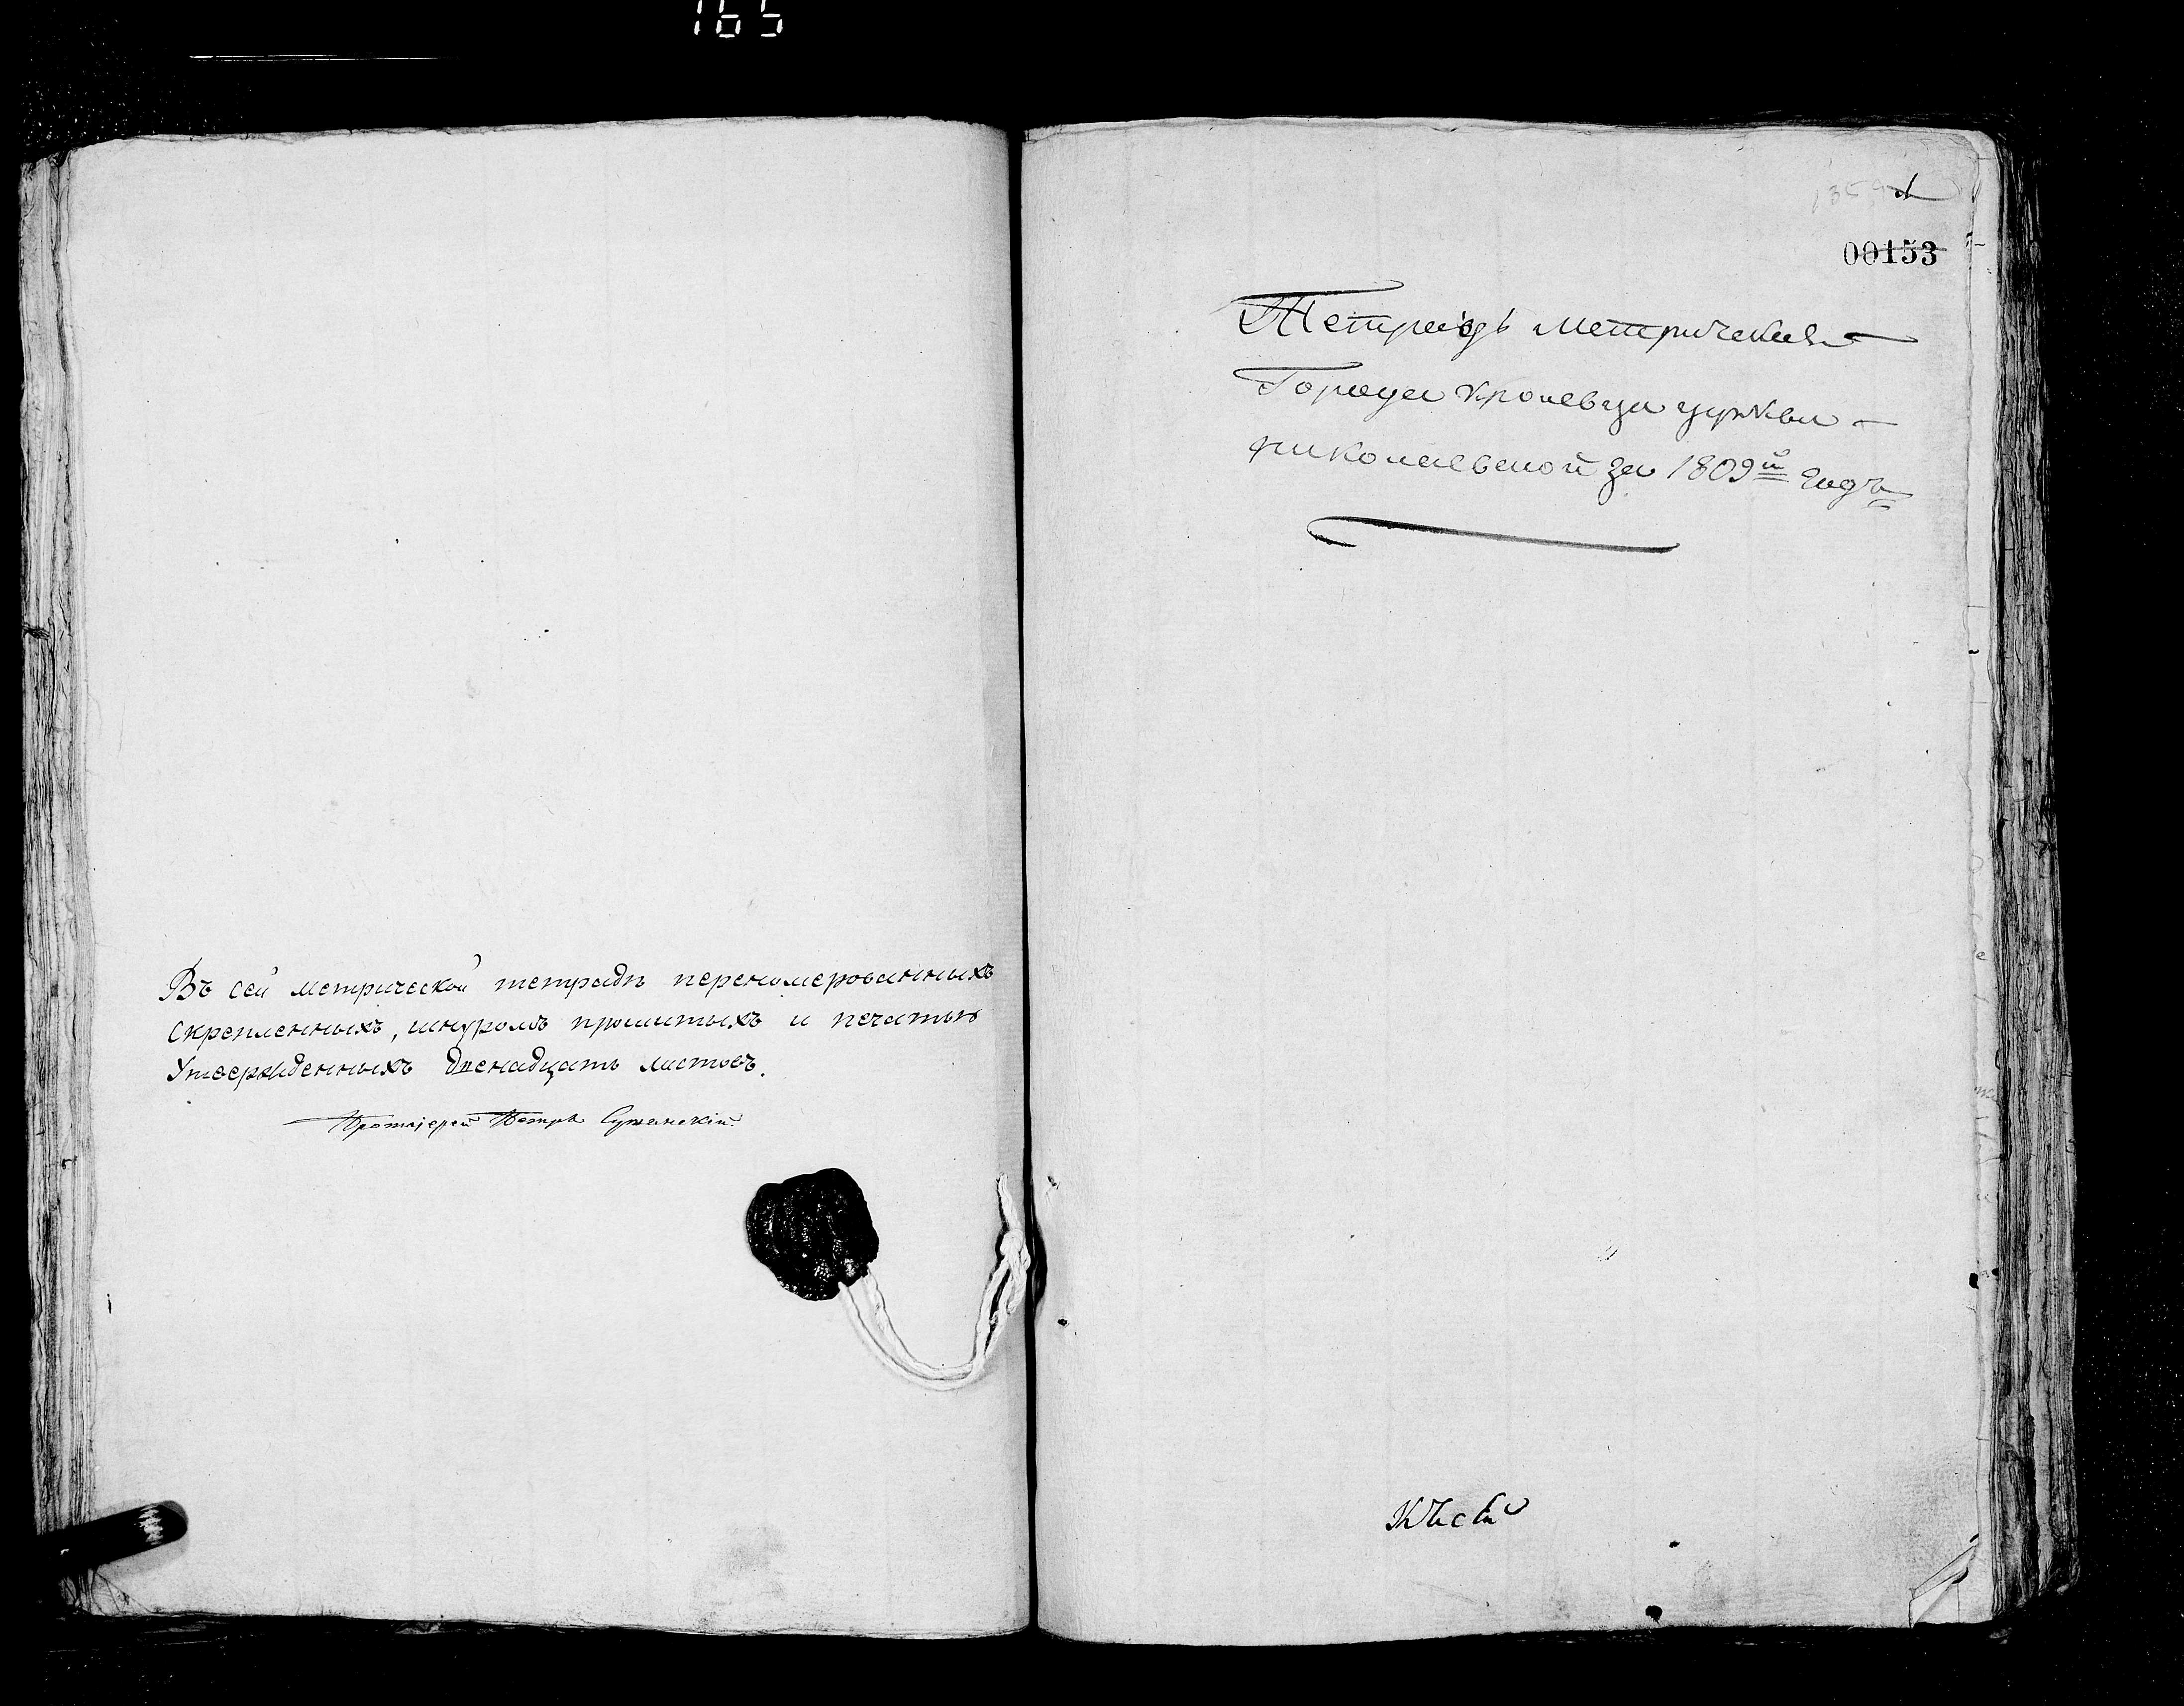 165
Въ сей метрической тетради переномерованныхъ
скрепленныхъ, шнуромъ прошитыхъ и печатью
Утвержденныхъ двенадцать листовъ.
Протоіерей Петръ
1
00153
Тетрадь метрическая
Города Кролевца церкви
николаевской за 1809й годъ